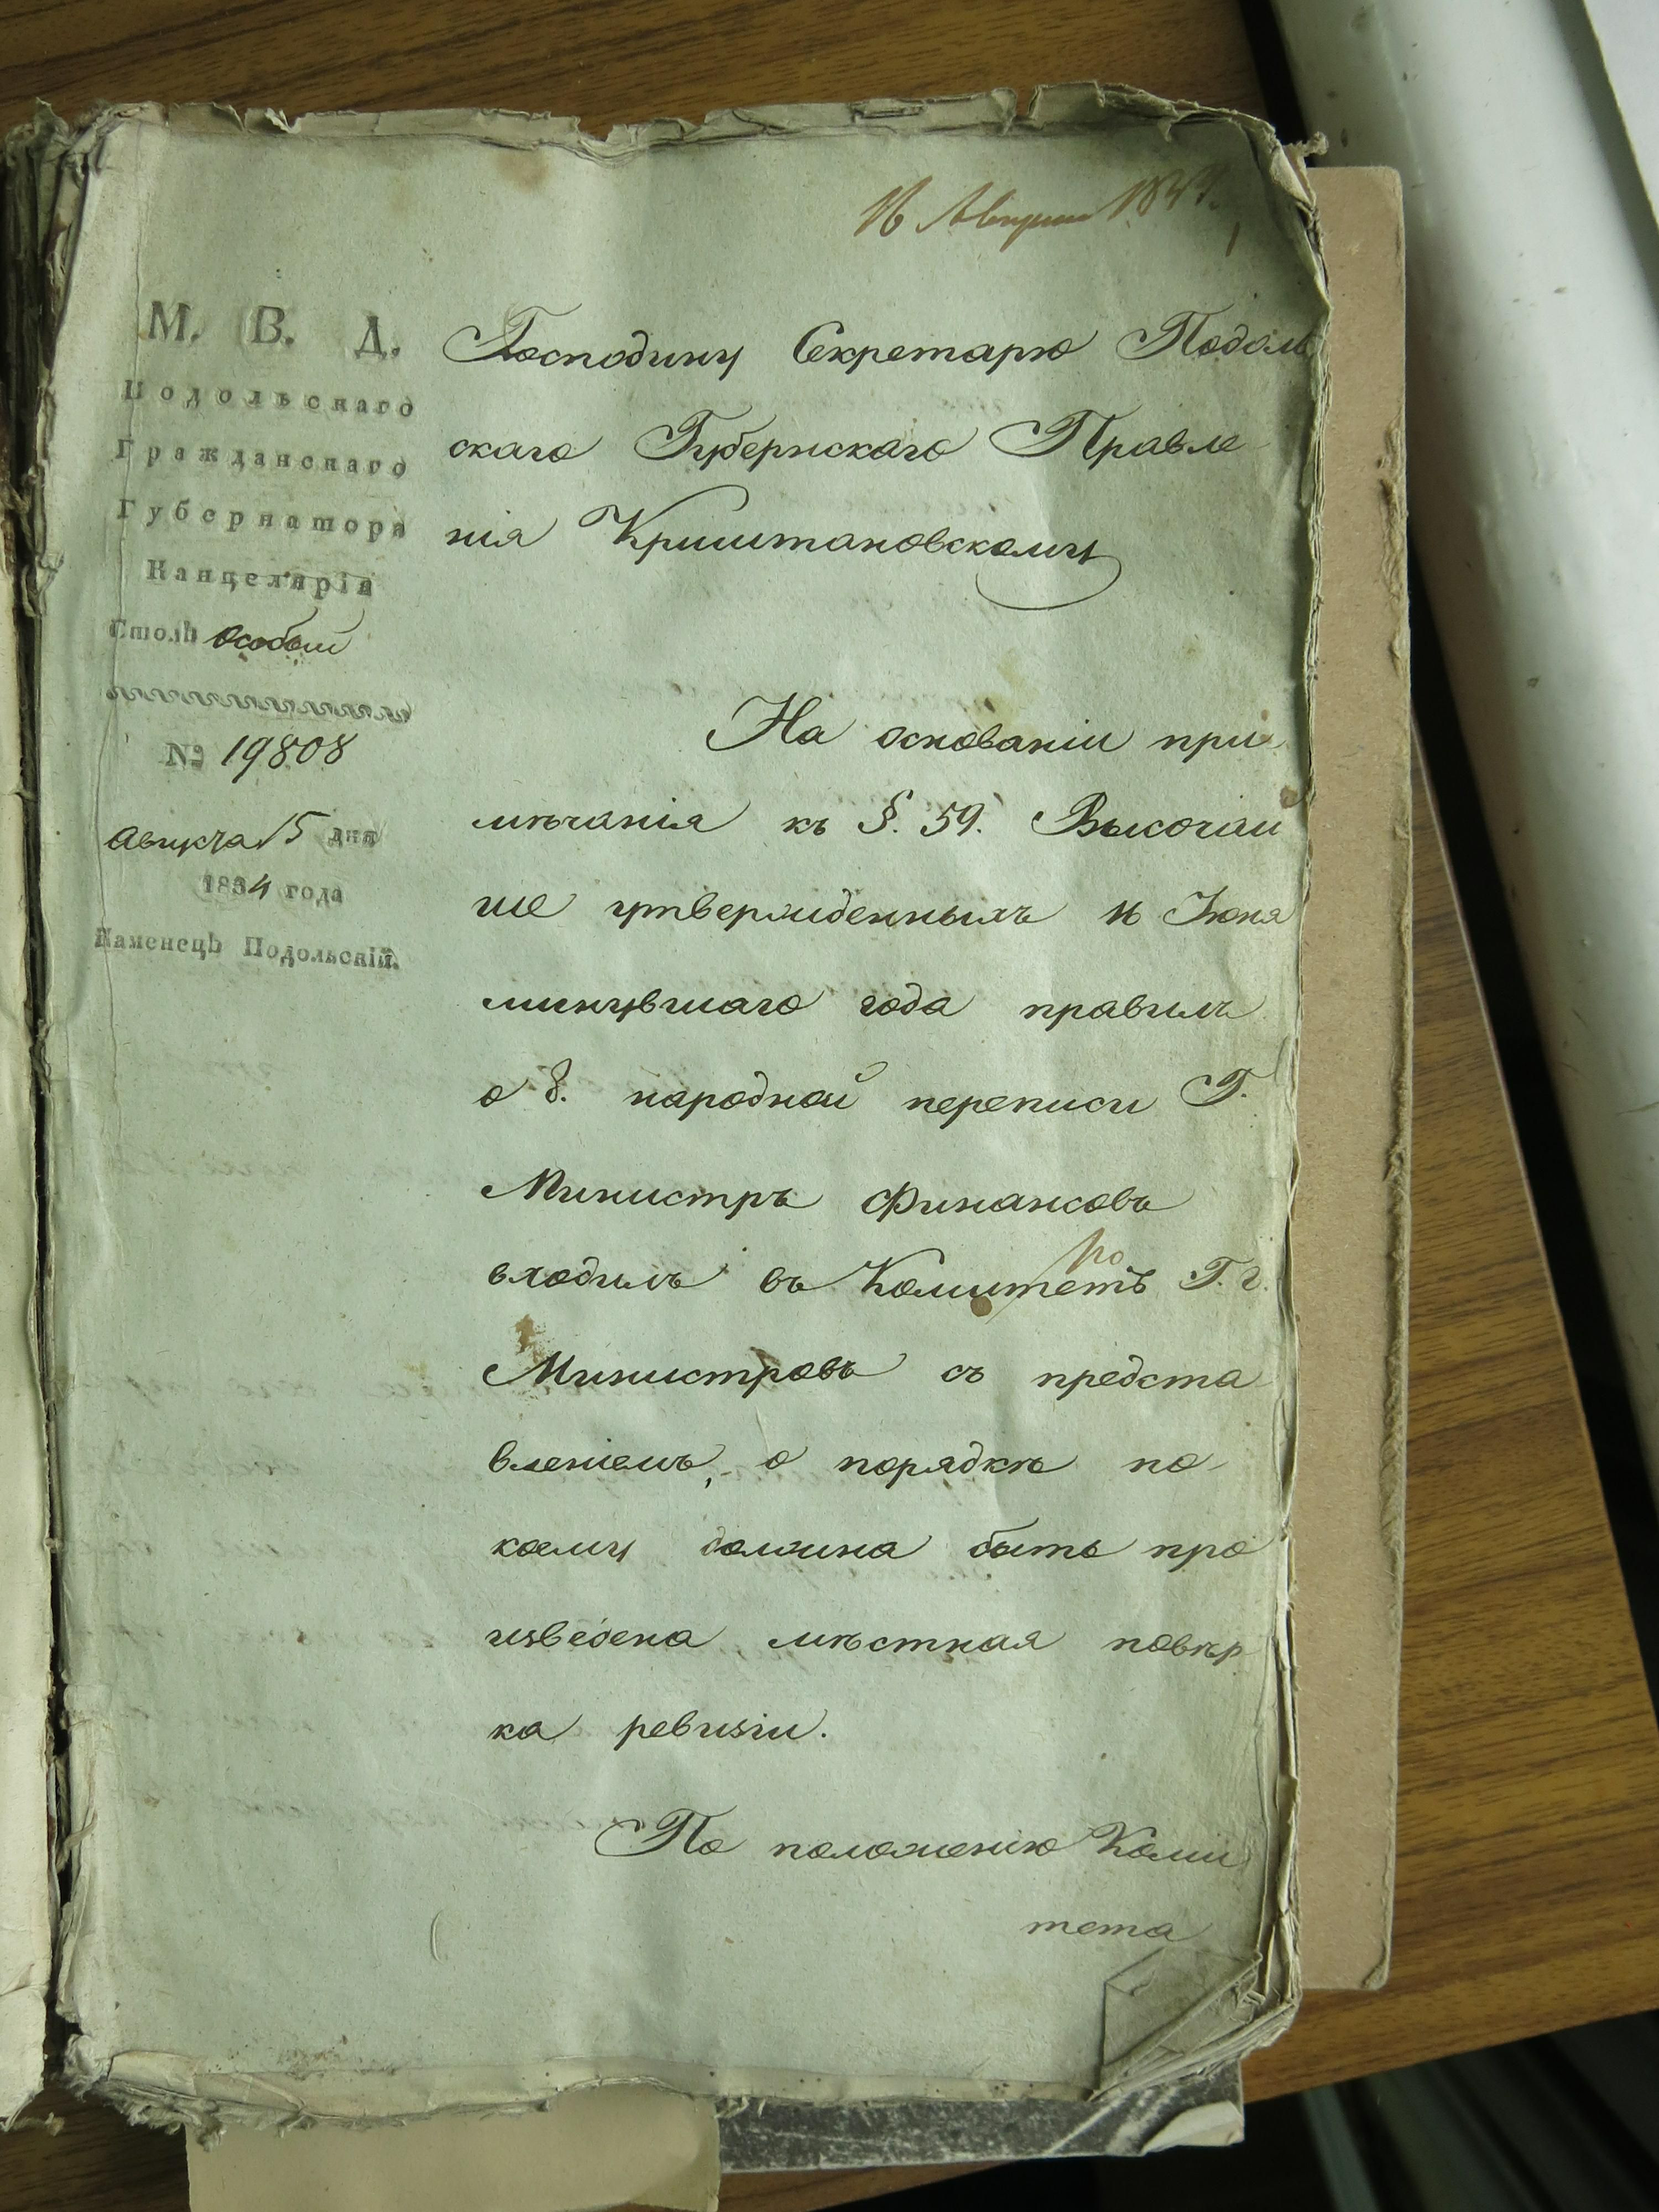 16 Августа 183
М. В. Д.
Подольскаго
Гражданскаго
Губернатора
Канцелярія
Столъ Особый
№ 19808
Августа 15 дня
1834 года
Каменецъ Подольскій.
Господину Секретарю Подоль
скаго Губернскаго Правле
нія Криштановскому
На основаніи при
мѣчанія къ §. 59. Высочай
ше утвержденныхъ 16 Іюня
минувшаго года правилъ
о 8. народной переписи Г.
Министръ Финансовъ
входилъ въ Комитетъ Г. г.
Министровъ съ предста
вленіемъ, о порядкѣ по
коему должна быть про
изведена мѣстная повѣр
ка ревизіи.
По положенію Коми
тета